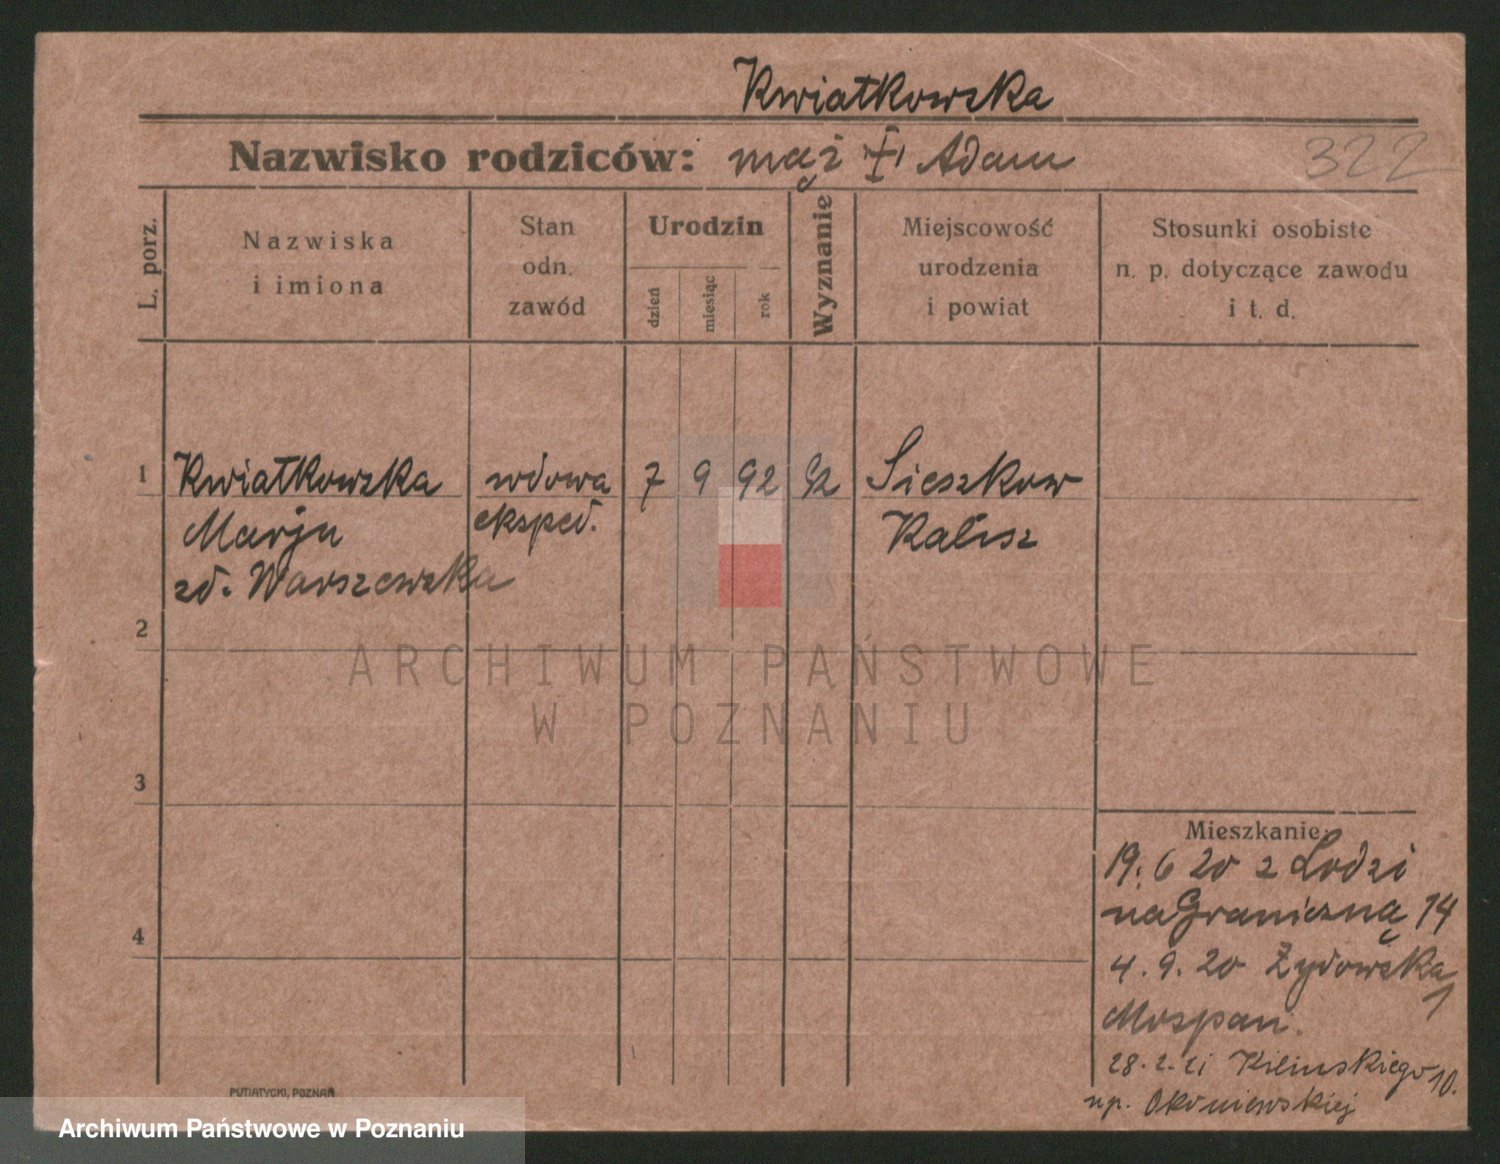 Kwiatkowska
Nazwisko rodziców: mąż Adam
322
L. porz.
Nazwiska
i imiona
Stan
odn.
zawód
Urodzin
dzień
miesiąc
rok
Wyznanie
Miejscowość
urodzenia
i powiat
Stosunki osobiste
n. p. dotyczące zawodu
i t. d.
1
Kwiatkowska
Marja
zd. Warszewska
wdowa
eksped.
7 9 92
Sieszkow
Kalisz
2
3
4
Mieszkanie:
19.6 20 z Lodzi
na Graniczną 14
4.9.20 Żydowska
1
Mospan.
28.2.21 Kilinskiego 10.
np. Okoniewskiej
PUTIATYCKI, POZNAŃ
ARCHIWUM PAŃSTWOWE
W POZNANIU
Archiwum Państwowe w Poznaniu